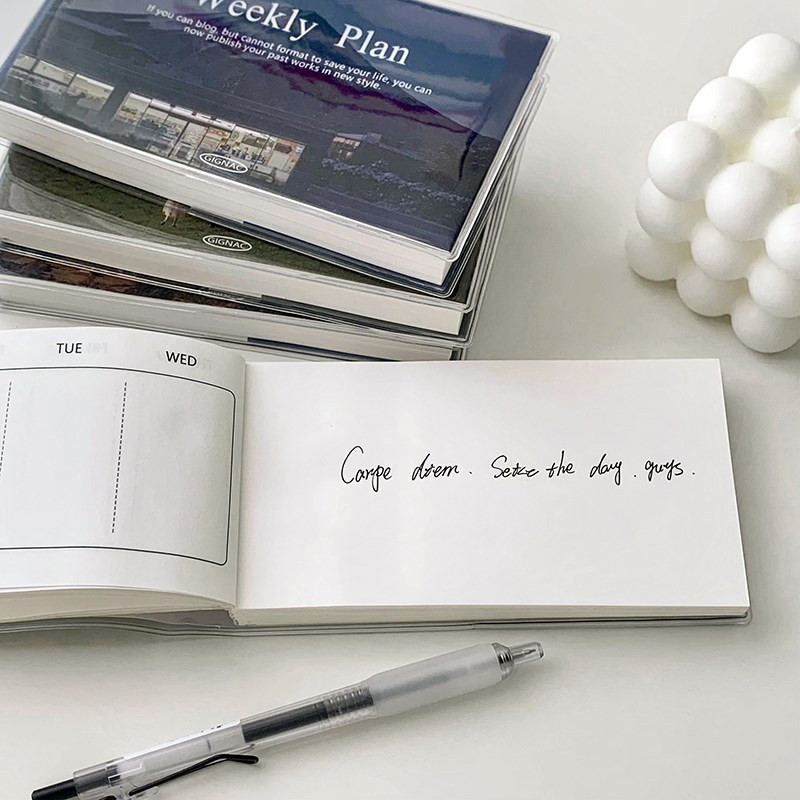 Weekly Plan
If you can blog, but cannot format to save your life, you can
now publish your past works in new style.
GIGNAC
GIGNAC
TUE
WED
Carpe diem. Seize the day. guys.